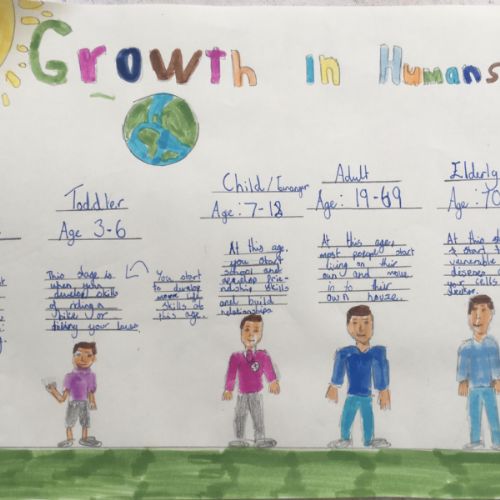 Growth in Humans
Toddler
Age 3-6
This stage is
when you
develop skills
of riding a
bike or
tieing your lases.
You start
to develop
more life
skills at
this age.
Child/Teenager
Age: 7-18
At this age,
you start
school and
develop frie-
ndship skills
and build
relationships.
Adult
Age: 19-69
At this age,
most people start
living on their
own and move
in to their
own house.
Elderly
Age: 70
At this st
& start
vulnerable
diseases
your cells